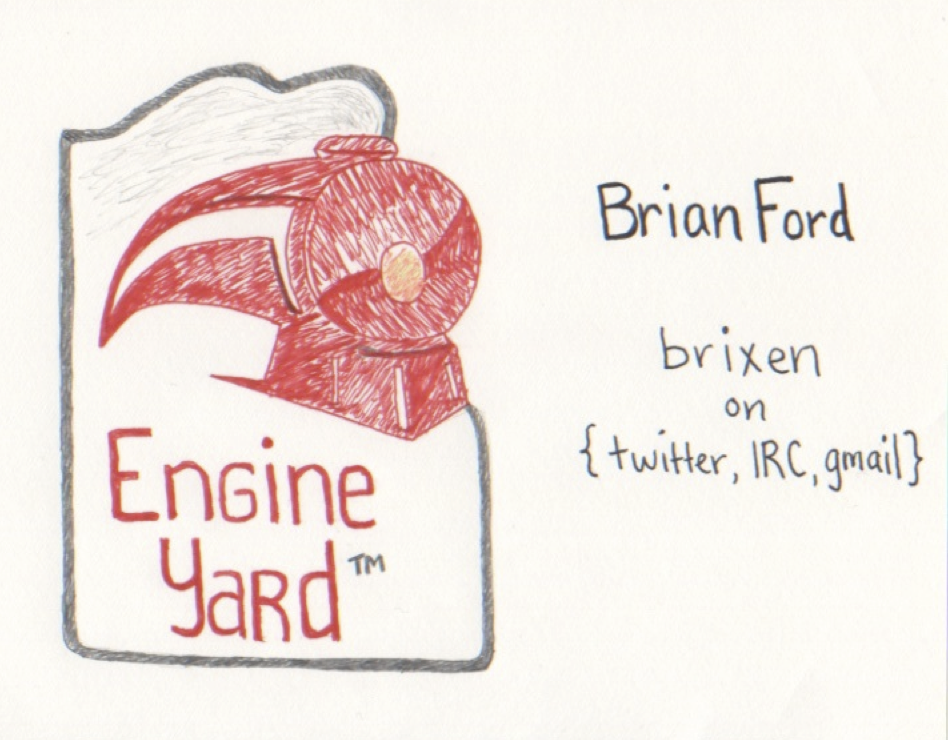 Engine
Yard™
Brian Ford
brixen
on
{twitter, IRC, gmail}